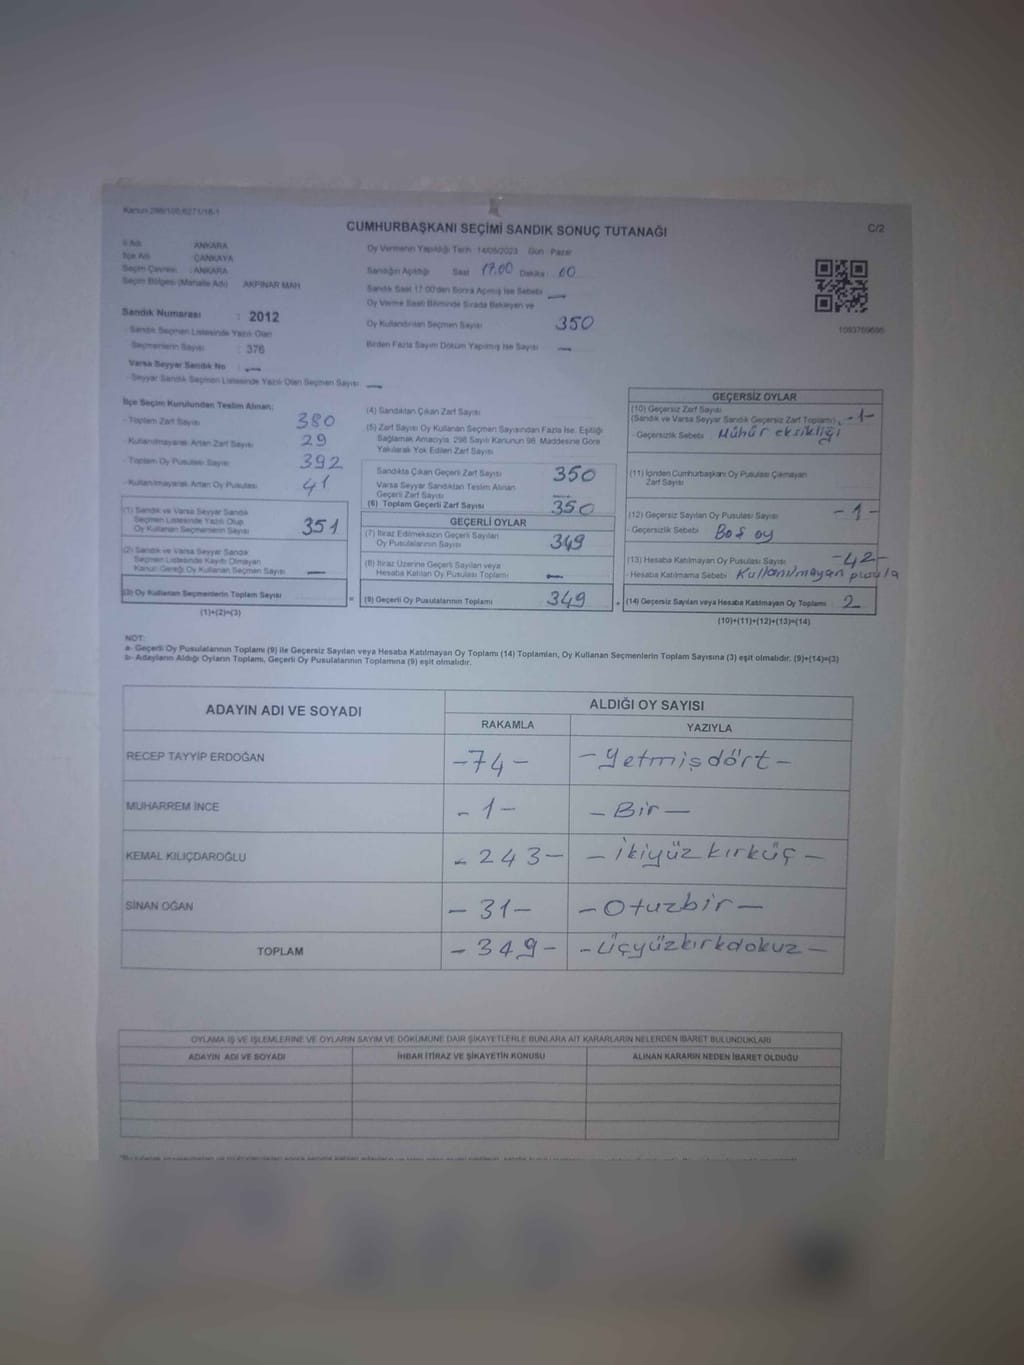 Kanun 298/105;6271/16-1
CUMHURBAŞKANI SEÇİMİ SANDIK SONUÇ TUTANAĞI
C/2
İl Adı : ANKARA
İlçe Adı : ÇANKAYA
Seçim Çevresi : ANKARA
Seçim Bölgesi (Mahalle Adı) AKPINAR MAH
Sandık Numarası : 2012
- Sandık Seçmen Listesinde Yazılı Olan
Seçmenlerin Sayısı : 376
Varsa Seyyar Sandık No : —
- Seyyar Sandık Seçmen Listesinde Yazılı Olan Seçmen Sayısı —
Oy Vermenin Yapıldığı Tarih : 14/05/2023 Gün : Pazar
Sandığın Açıldığı Saat 17.00 Dakika : 00
Sandık Saat 17:00'den Sonra Açılmış İse Sebebi —
Oy Verme Saati Bitiminde Sırada Bekleyen ve
Oy Kullandırılan Seçmen Sayısı 350
Birden Fazla Sayım Döküm Yapılmış İse Sayısı —
İlçe Seçim Kurulundan Teslim Alınan;
- Toplam Zarf Sayısı 380
- Kullanılmayarak Artan Zarf Sayısı 29
- Toplam Oy Pusulası Sayısı 392
- Kullanılmayarak Artan Oy Pusulası 41
(1) Sandık ve Varsa Seyyar Sandık
Seçmen Listesinde Yazılı Olup
Oy Kullanan Seçmenlerin Sayısı 351
(2) Sandık ve Varsa Seyyar Sandık
Seçmen Listesinde Kayıtlı Olmayan
Kanun Gereği Oy Kullanan Seçmen Sayısı —
(3) Oy Kullanan Seçmenlerin Toplam Sayısı
(1)+(2)=(3)
(4) Sandıktan Çıkan Zarf Sayısı
(5) Zarf Sayısı Oy Kullanan Seçmen Sayısından Fazla İse, Eşitliği
Sağlamak Amacıyla, 298 Sayılı Kanunun 98. Maddesine Göre
Yakılarak Yok Edilen Zarf Sayısı
Sandıkta Çıkan Geçerli Zarf Sayısı 350
Varsa Seyyar Sandıktan Teslim Alınan
Geçerli Zarf Sayısı —
(6) Toplam Geçerli Zarf Sayısı 350
GEÇERLİ OYLAR
(7) İtiraz Edilmeksizin Geçerli Sayılan
Oy Pusulalarının Sayısı 349
(8) İtiraz Üzerine Geçerli Sayılan veya
Hesaba Katılan Oy Pusulası Toplamı —
(9) Geçerli Oy Pusulalarının Toplamı 349
GEÇERSİZ OYLAR
(10) Geçersiz Zarf Sayısı
(Sandık ve Varsa Seyyar Sandık Geçersiz Zarf Toplamı) -1-
- Geçersizlik Sebebi Mühür eksikliği
(11) İçinden Cumhurbaşkanı Oy Pusulası Çıkmayan
Zarf Sayısı
(12) Geçersiz Sayılan Oy Pusulası Sayısı -1-
- Geçersizlik Sebebi Boş oy
(13) Hesaba Katılmayan Oy Pusulası Sayısı -42-
- Hesaba Katılmama Sebebi Kullanılmayan pusula
(14) Geçersiz Sayılan veya Hesaba Katılmayan Oy Toplamı 2
(10)+(11)+(12)+(13)=(14)
NOT:
a- Geçerli Oy Pusulalarının Toplamı (9) ile Geçersiz Sayılan veya Hesaba Katılmayan Oy Toplamı (14) Toplamları, Oy Kullanan Seçmenlerin Toplam Sayısına (3) eşit olmalıdır. (9)+(14)=(3)
b- Adayların Aldığı Oyların Toplamı, Geçerli Oy Pusulalarının Toplamına (9) eşit olmalıdır.
ADAYIN ADI VE SOYADI
ALDIĞI OY SAYISI
RAKAMLA YAZIYLA
RECEP TAYYİP ERDOĞAN -74- -Yetmişdört-
MUHARREM İNCE -1- -Bir-
KEMAL KILIÇDAROĞLU -243- -İkiyüzkırküç-
SİNAN OĞAN -31- -Otuzbir-
TOPLAM -349- -Üçyüzkırkdokuz-
OYLAMA İŞ VE İŞLEMLERİNE VE OYLARIN SAYIM VE DÖKÜMÜNE DAİR ŞİKAYETLERLE BUNLARA AİT KARARLARIN NELERDEN İBARET BULUNDUKLARI
ADAYIN ADI VE SOYADI İHBAR İTİRAZ VE ŞİKAYETİN KONUSU ALINAN KARARIN NEDEN İBARET OLDUĞU